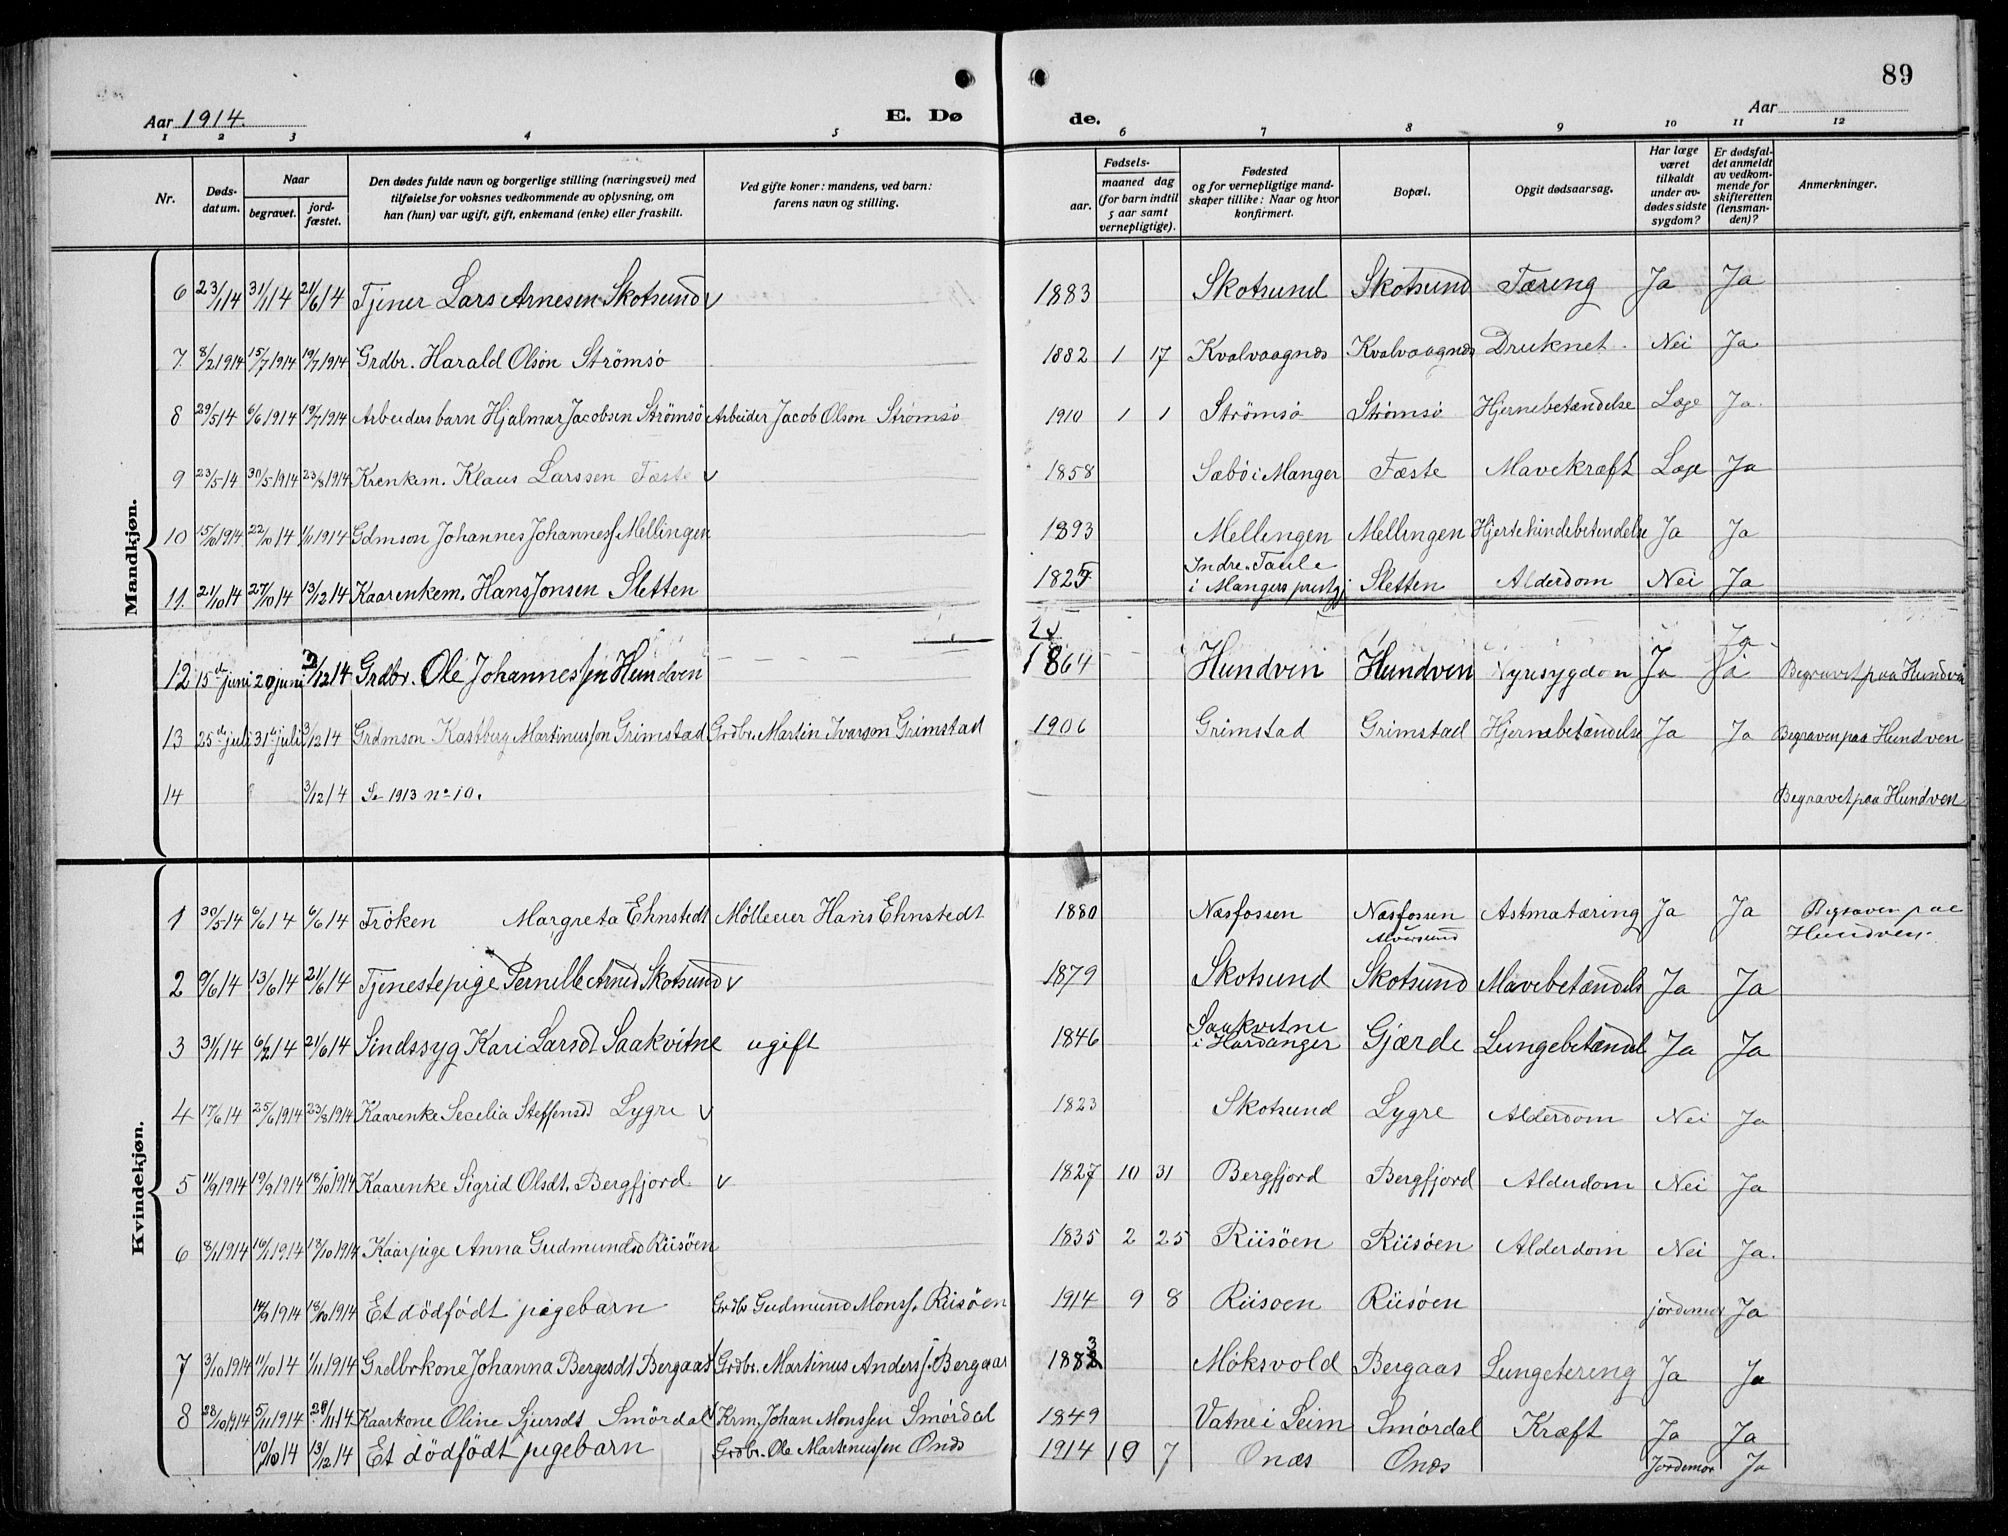 89
Aar 1914.
E. Dø
de.
Aar
1 2 3 4 5 6 7 8 9 10 11 12
Nr.
Døds-
datum.
Naar
begravet.
jord-
fæstet.
Den dødes fulde navn og borgerlige stilling (næringsvei) med
tilføielse for voksnes vedkommende av oplysning, om
han (hun) var ugift, gift, enkemand (enke) eller fraskilt.
Ved gifte koner: mandens, ved barn:
farens navn og stilling.
Fødsels-
aar.
maaned dag
(for barn indtil
5 aar samt
vernepligtige).
Fødested
og for vernepligtige mand-
skaper tillike: Naar og hvor
konfirmert.
Bopæl.
Opgit dødsaarsag.
Har læge
været
tilkaldt
under av-
dødes sidste
sygdom?
Er dødsfal-
det anmeldt
av vedkom-
mende for
skifteretten
(lensman-
den)?
Anmerkninger.
Mandkjøn.
6 23/1 14 31/1 14 21/6 14 Tjener Lars Arnesen Skotsund v 1883 Skotsund Skotsund Tæring Ja Ja
7. 8/2 1914 15/7 1914 19/7 1914 Grdbr. Harald Olson Strömsö 1882 1 17 Kvalvaagnes Kvalvaagnes Druknet. Nei Ja
8 29/5 14 6/6 1914 19/7 1914 Arbeidersbarn Hjalmar Jacobsen Strömsö Arbeider Jacob Olson Strömsö 1910 1 1 Strömsö Strömsö Hjernebetændelse Læge Ja.
9 23/5 14 30/5 1914 23/8 1914 Krenkem. Klaus Larssen Fæste v 1858 Sæbö i Manger Fæste Mavekræft Læge Ja
10 15/10 1914 22/10 14 1/11 1914 Gdmson Johannes Johannesf. Mellingen 1893 Mellingen Mellingen Hjertehindebetendelse Ja Ja
11. 21/10 14 27/10 14 13/12 14 Kaarenkem. Hans Jonsen Sletten 1825 Indre-Taule
i Mangers prestgj Sletten Alderdom Nei Ja
12 15de juni 20 juni 3/12 14 Grdbr. Ole Johannessen Hundven 1864 Hundven Hundven Nyresygdom Ja Ja Begravet paa Hundven
13 25de juli 31te juli 3/12 14 Grdmson Kastberg Martinussøn Grimstad Grdbr. Martin Ivarson Grimstad 1906 Grimstad Grimstad Hjernebetændelse Ja Ja Begraven paa Hundven
14 3/12 14 Se 1913 no 10. Begravet paa Hundven
Kvindekjøn.
1 30/5 14 6/6 14 6/6 14 Fröken Margreta Ehnstedt Mølleeier Hans Ehnstedt 1880 Næsfossen Næsfossen
Alversund Astmatæring Ja Ja Begraven paa
Hundven.
2 9/6 14 13/6 14 21/6 14 Tjenestepige Pernille Arnesd Skotsund v 1879 Skotsund Skotsund Mavebetændels Ja Ja
3 31/1 14 6/2 14 21/6 14 Sindssyg Kari Larsdt Saakvitne ugift 1846 Saakvitne
i Hardanger Gjærde Lungebetændel Ja Ja
4 17/6 14 25/6 1914 23/8 1914 Kaarenke Secelia Steffensd Lygre v 1823 Skotsund Lygre Alderdom Nei Ja
5 11/9 1914 19/9 1914 18/10 1914 Kaarenke Sigrid Olsdt. Bergfjord v 1827 10 31 Bergfjord Bergfjord Alderdom Nei Ja
6 8/1 1914 16/1 1914 18/10 1914 Kaarpige Anna Gudmundsd Riisöen 1835 2 25 Riisöen Riisöen Alderdom Nei Ja.
14/9 1914 18/10 1914 Et dödfödt pigebarn Grdbr Gudmund Monsf. Riisöen 1914 9 8 Riisoen Riisöen jordemor Ja
7 3/10 1914 11/10 14 1/11 1914 Grdbrkone Johanna Bergesdt Bergaas Grdbr. Martinus Andersf. Bergaas 1883 Möksvold Bergaas Lungetering Ja Ja
8 28/10 1914 5/11 1914 29/11 14 Kaarkone Oline Sjursdt Smördal Krm. Johan Monssen Smördal 1849 Vatne i Seim Smördal Kræft Ja Ja
10/10 14 13/12 14 Et dödfödt pigebarn Grdbr. Ole Martinussen Onæs 1914 10 7 Onæs Onæs Jordemor Ja